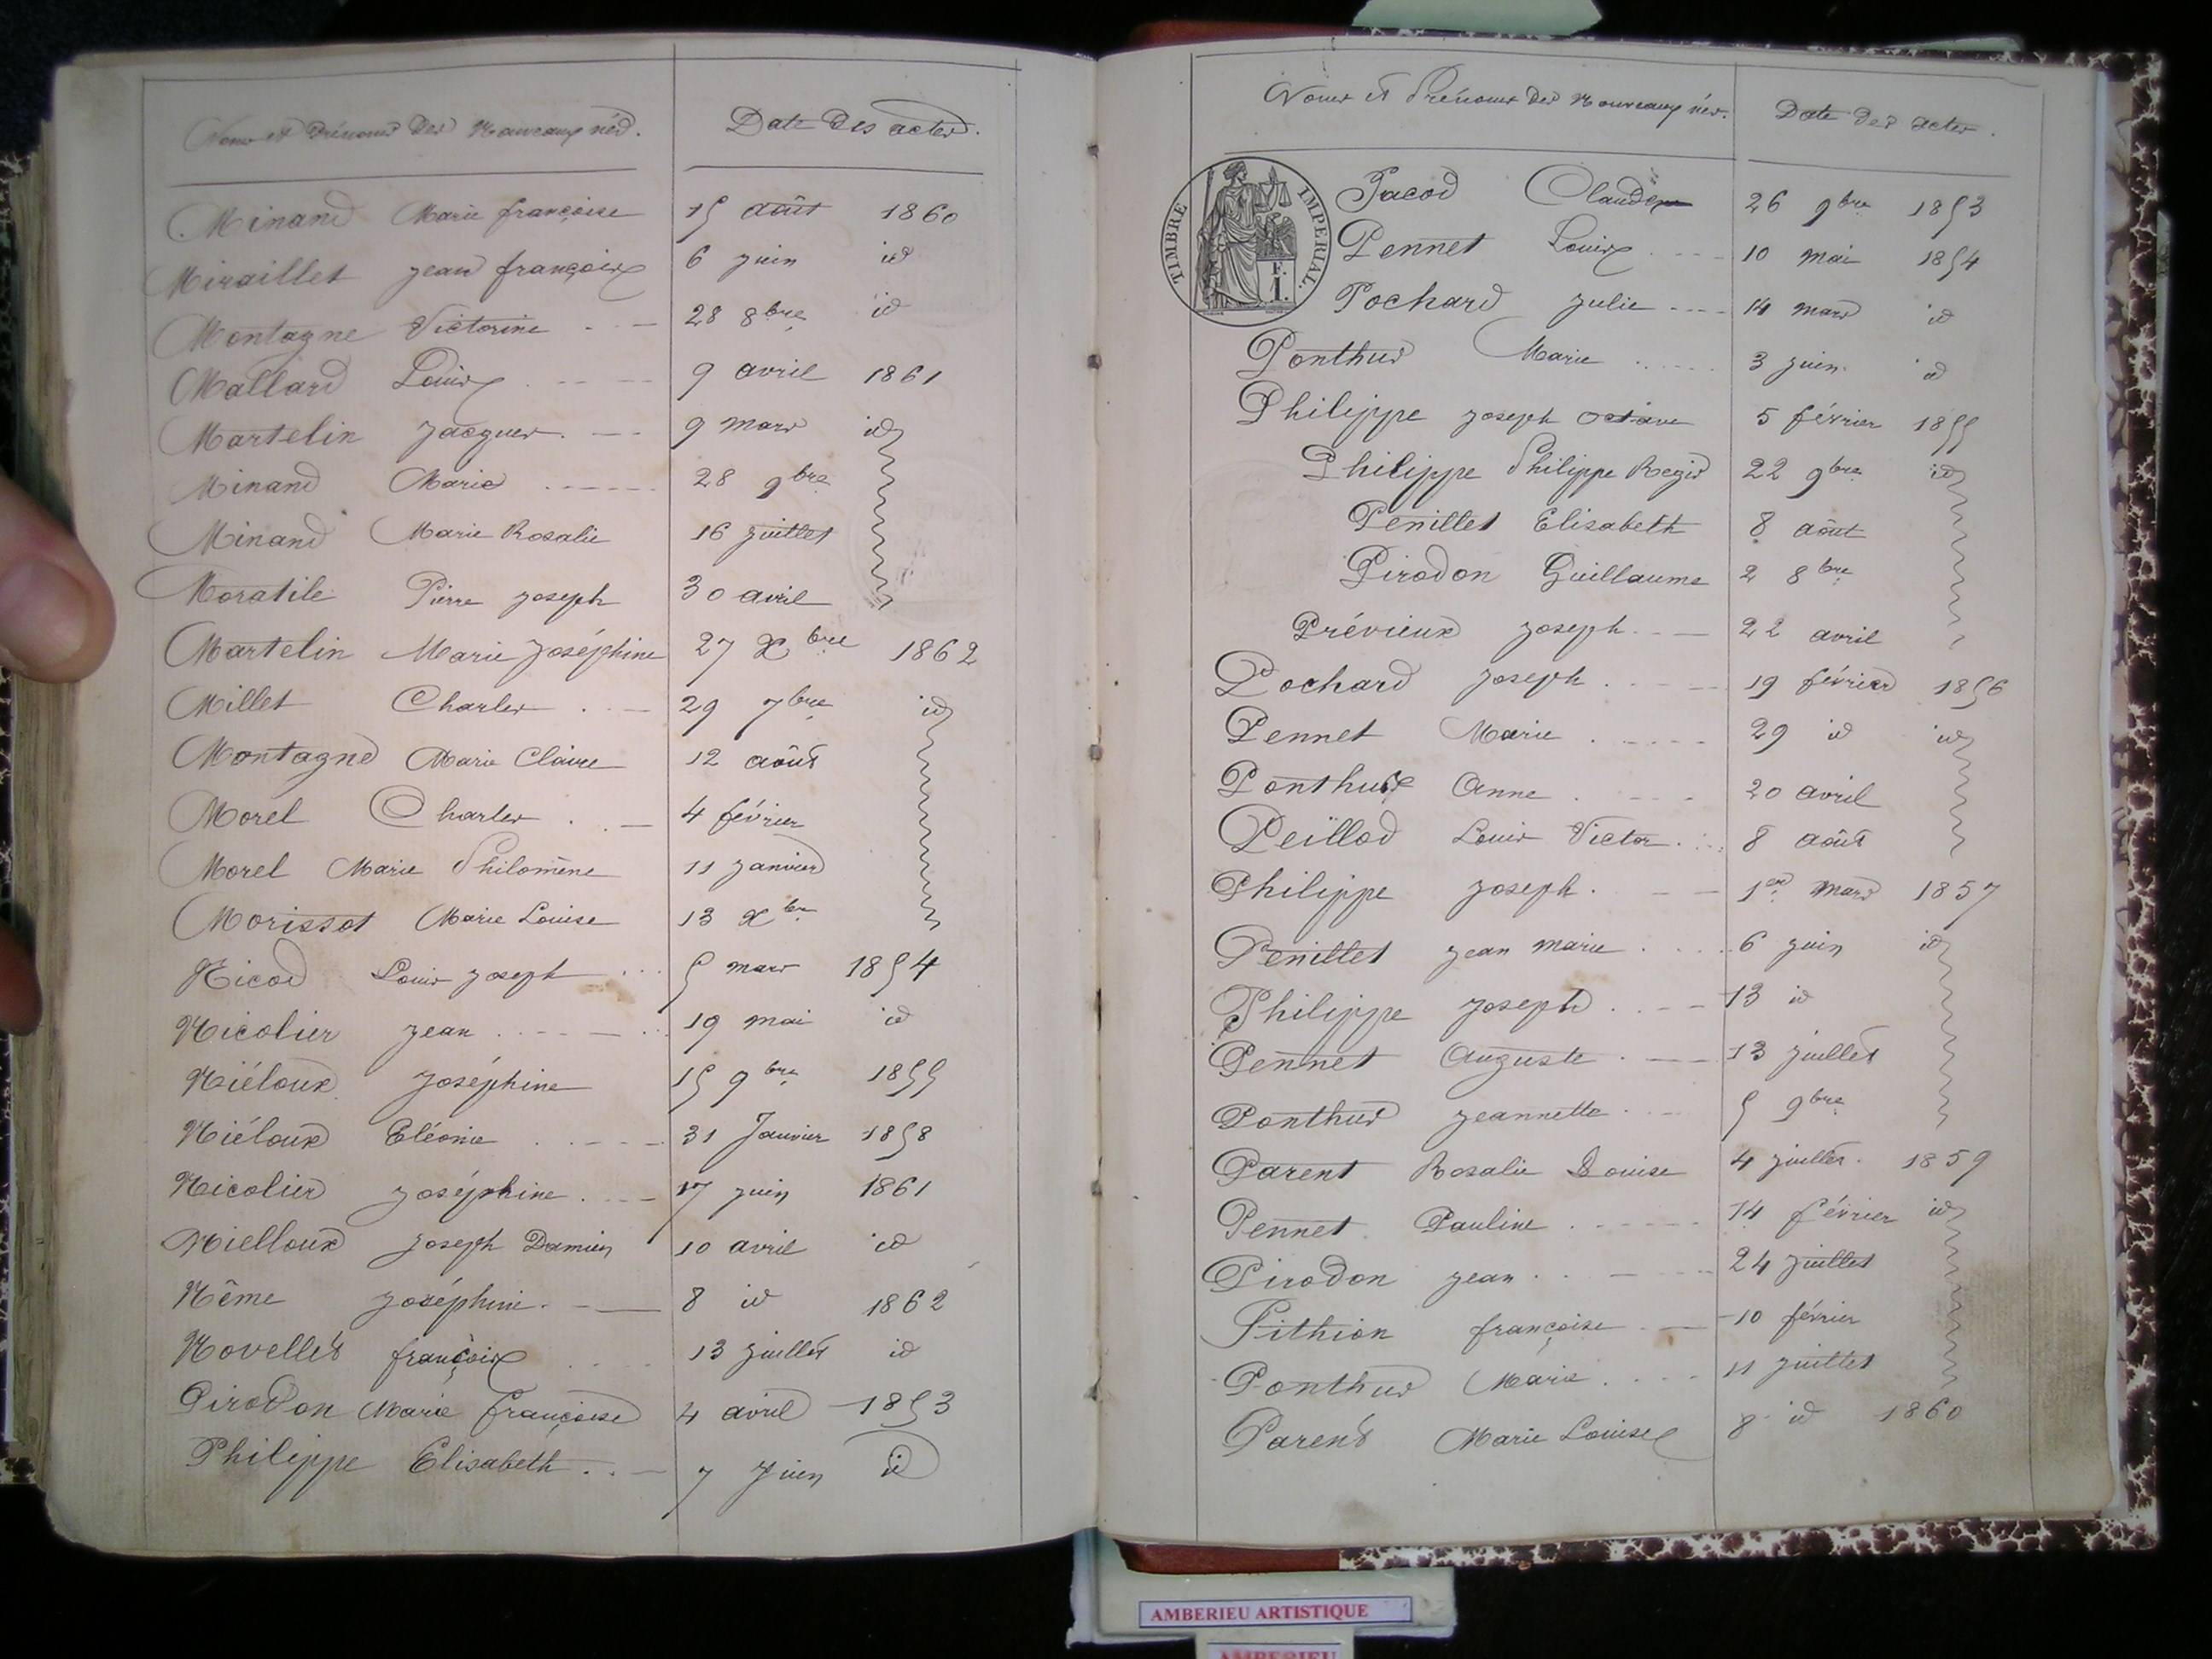 Noms et Prénoms des Nouveaux nés. Date des actes.
Minand Marie françoise 15 août 1860
Miraillet jean françois 6 juin id
Montagne Victorine 28 8bre id
Mallard Louis 9 avril 1861
Martelin Jacques 9 mars id
Minand Marie 28 9bre
Minand Marie Rosalie 16 juillet
Moratile Pierre joseph 30 avril
Martelin Marie Joséphine 27 Xbre 1862
Millet Charles 29 7bre id
Montagne Marie Claire 12 août
Morel Charles 4 février
Morel Marie Philomène 11 janvier
Morissot Marie Louise 13 Xbre
Nicod Louis joseph 5 mars 1854
Nicolier jean 19 mai id
Niéloux Joséphine 15 9bre 1855
Niéloux Eléonie 31 Janvier 1858
Nicolier joséphine 17 juin 1861
Nielloux joseph Damien 10 avril id
Nême joséphine 8 id 1862
Novellet françois 13 juillet id
Pirodon Marie françoise 4 avril 1853
Philippe Elisabeth 7 Juin id
Noms et Prénoms des Nouveaux nés. Date des actes.
TIMBRE IMPERIAL.
F.
1.
Pacod Claude 26 9bre 1853
Pennet Louis 10 mai 1854
Pochard Julie 14 mars id
Ponthus Marie 3 juin id
Philippe joseph octave 5 février 1855
Philippe Philippe Regis 22 9bre id
Penillet Elisabeth 8 août
Pirodon Guillaume 2 8bre
Prévieux joseph 22 avril
Pochard joseph 19 février 1856
Pennet Marie 29 id id
Ponthus Anne 20 avril
Peillod Louis Victor 8 août
Philippe joseph 1er mars 1857
Penillet jean marie 6 juin id
Philippe joseph 13 id
Pennet Auguste 13 juillet
Ponthus jeannette 5 9bre
Parent Rosalie Louise 4 juillet 1859
Pennet Pauline 14 février id
Pirodon jean 24 juillet
Pithion françoise 10 février
Ponthus Marie 11 juillet
Parent Marie Louise 8 id 1860
AMBERIEU ARTISTIQUE
AMBERIEU